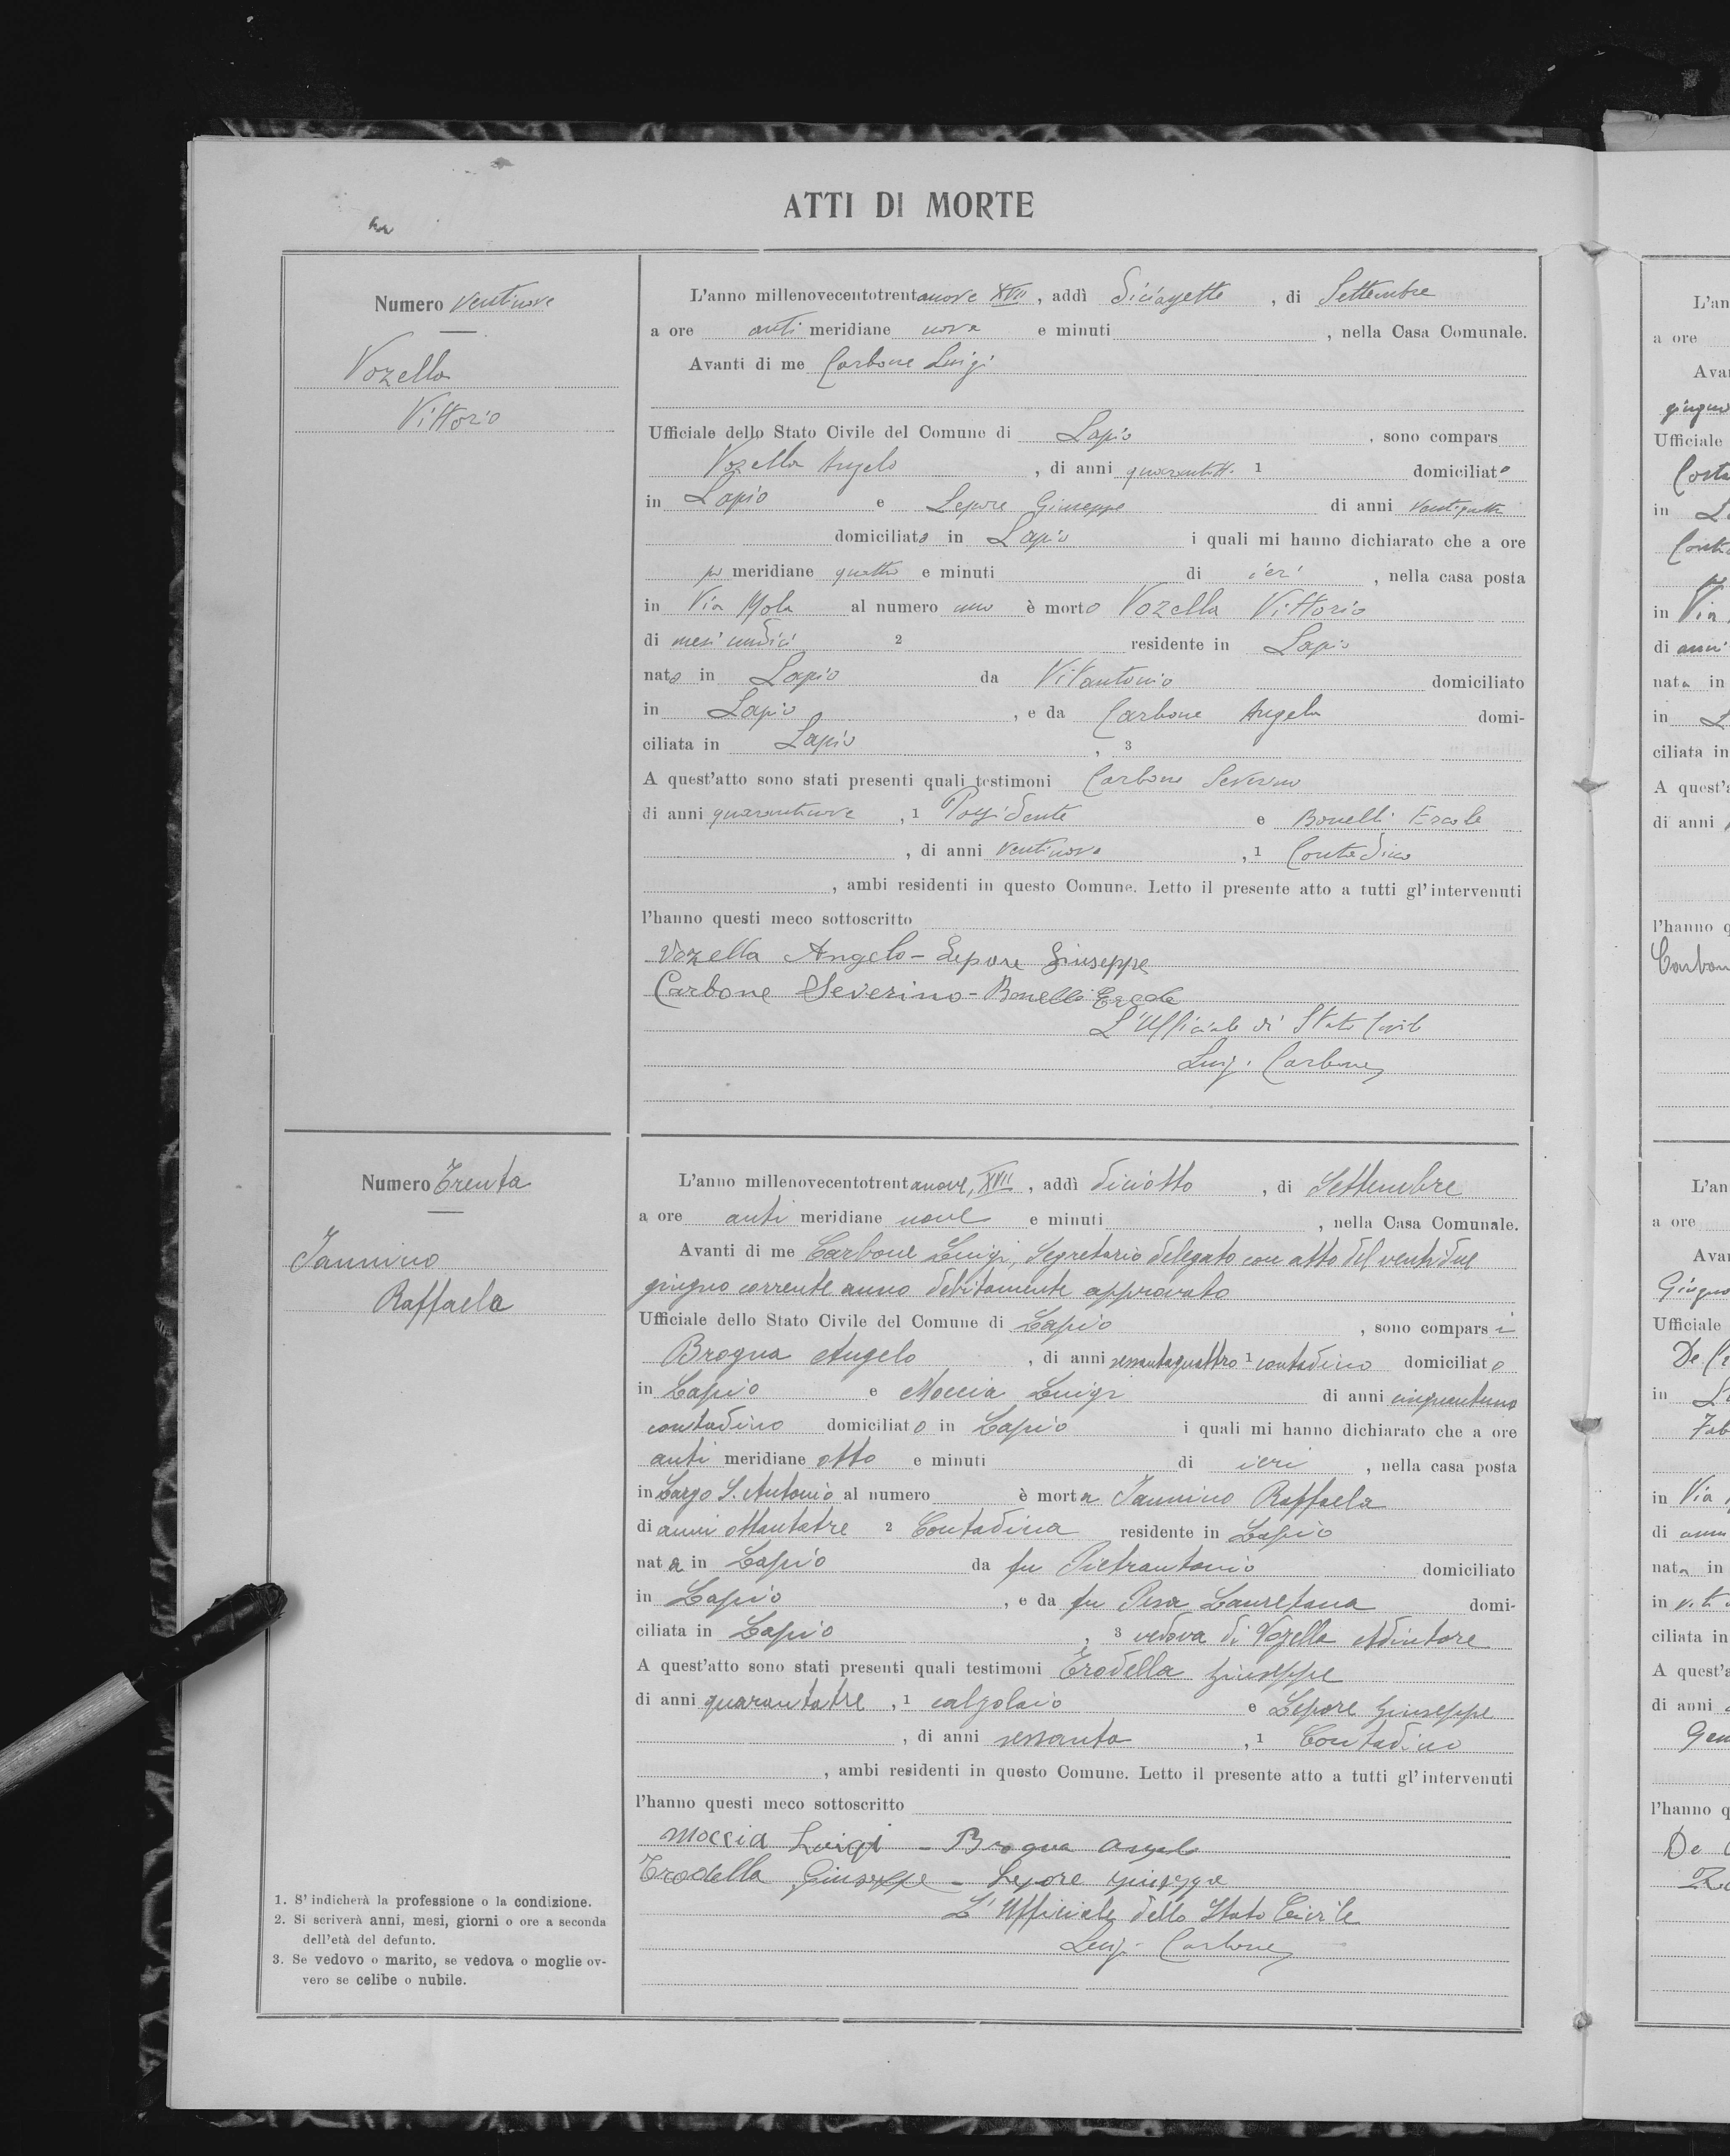 ATTI DI MORTE
Numero Ventinove
Vozella
Vittorio
L'anno millenovecentotrentanove XVII, addì diciasette, di Settembre
a ore anti meridiane nove e minuti , nella Casa Comunale.
Avanti di me Carbone Luigi
Ufficiale dello Stato Civile del Comune di Lapio, sono compars
Vozella Angelo, di anni quarantotto 1 domiciliato
in Lapio e Lepore Giuseppe di anni ventiquattro
domiciliato in Lapio i quali mi hanno dichiarato che a ore
po meridiane quattro e minuti di ieri, nella casa posta
in Via Mola al numero uno è morto Vozella Vittorio
di mesi undici 2 residente in Lapio
nato in Lapio da Vitantonio domiciliato
in Lapio, e da Carbone Angela domi-
ciliata in Lapio, 3
A quest'atto sono stati presenti quali testimoni Carbone Severino
di anni quarantanove, 1 Possidente e Bonelli Ercole
, di anni ventinove, 1 Contadino
, ambi residenti in questo Comune. Letto il presente atto a tutti gl'intervenuti
l'hanno questi meco sottoscritto
Vozella Angelo - Lepore Giuseppe
Carbone Severino - Bonelli Ercole
L'Ufficiale di Stato Civile
Luigi Carbone
Numero Trenta
Iannino
Raffaela
L'anno millenovecentotrentanove, XVII, addì diciotto, di Settembre
a ore anti meridiane nove e minuti , nella Casa Comunale.
Avanti di me Carbone Luigi, Segretario delegato con atto del ventidue
giugno corrente anno debitamente approvato
Ufficiale dello Stato Civile del Comune di Lapio, sono comparsi
Brogna Angelo, di anni sessantaquattro 1 contadino domiciliato
in Lapio e Moccia Luigi di anni cinquantuno
contadino domiciliato in Lapio i quali mi hanno dichiarato che a ore
anti meridiane otto e minuti di ieri, nella casa posta
in Largo S. Antonio al numero è morta Iannino Raffaela
di anni ottantatre 2 Contadina residente in Lapio
nata in Lapio da fu Pietrantonio domiciliato
in Lapio, e da fu Pisa Lauretana domi-
ciliata in Lapio, 3 vedova di Vozella Adiutore
A quest'atto sono stati presenti quali testimoni Trodella Giuseppe
di anni quarantatre, 1 calzolaio e Lepore Giuseppe
, di anni sessanta, 1 Contadino
, ambi residenti in questo Comune. Letto il presente atto a tutti gl'intervenuti
l'hanno questi meco sottoscritto
Moccia Luigi - Brogna Angelo
Trodella Giuseppe - Lepore Giuseppe
L'Ufficiale dello Stato Civile
Luigi Carbone
1. S'indicherà la professione o la condizione.
2. Si scriverà anni, mesi, giorni o ore a seconda
dell'età del defunto.
3. Se vedovo o marito, se vedova o moglie ov-
vero se celibe o nubile.
L'an
a ore
Ava
giugno
Ufficiale
Costa
in L
in Via
di anni
nata in
in L
ciliata in
A quest'a
di anni
l'hanno q
Carbon
L'an
a ore
Avan
Giugno
Ufficiale
De
in
in Via
di anni
nata in
in
ciliata in
A quest'a
di anni
Gen
l'hanno q
De